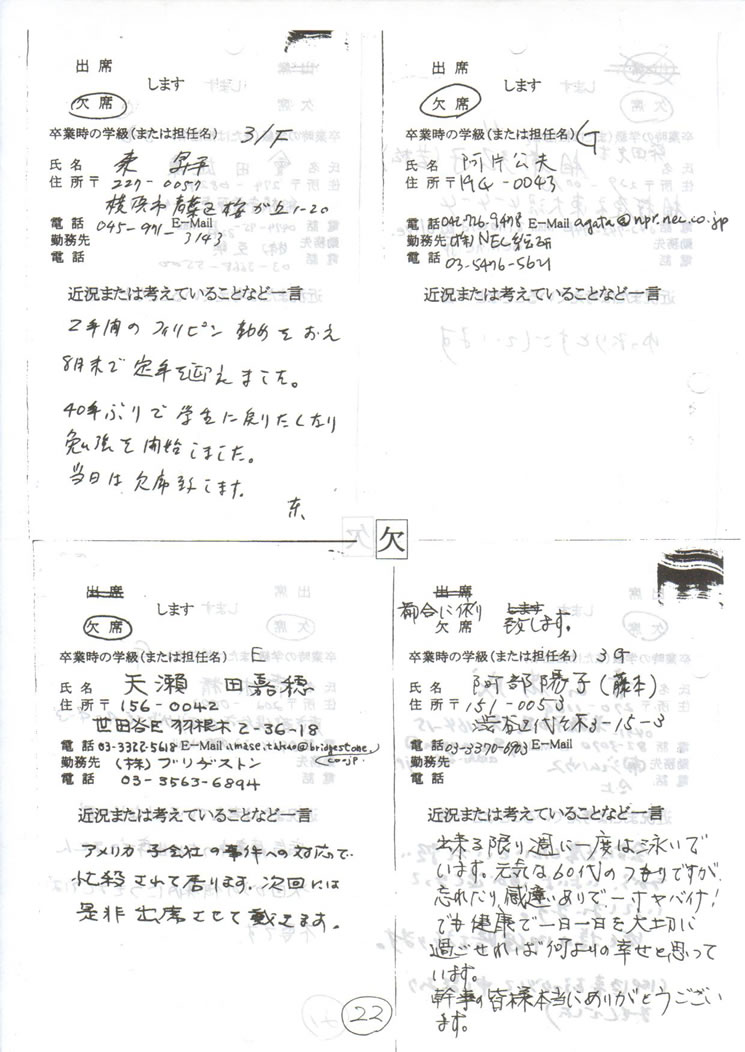 出席
します
欠席
卒業時の学級(または担任名) 3/F
氏名 東 昇平
住所〒 227-0057
横浜市青葉区桜が丘1-20
電話 045-971-3143 E-Mail
勤務先
電話
近況または考えていることなど一言
2年間のフィリピン勤めをおえ
8月末で定年を迎えました。
40年ぶりで学生に戻りたくなり
勉強を開始しました。
当日は欠席致します。
東
出席
します
欠席
卒業時の学級(または担任名) G
氏名 阿片公夫
住所〒194-0043
電話042-726-9498 E-Mail agata@npr.nec.co.jp
勤務先 (株)NEC総研
電話 03-5476-5621
近況または考えていることなど一言
欠
出席
します
欠席
卒業時の学級(または担任名) E
氏名 天瀬 田嘉穂
住所〒156-0042
世田谷区羽根木2-36-18
電話03-3322-5618 E-Mail amase.takao@bridgestone.co.jp
勤務先 (株)ブリヂストン
電話 03-3563-6894
近況または考えていることなど一言
アメリカ子会社の事件への対応で
忙殺されて居ります。次回には
是非出席させて戴きます。
出席
都合に依り します
欠席 致します。
卒業時の学級(または担任名) 3G
氏名 阿部陽子(藤本)
住所〒151-0053
渋谷区代々木3-15-3
電話03-3370-6903 E-Mail
勤務先
電話
近況または考えていることなど一言
出来る限り週に一度は泳いで
います。元気な60代のつもりですが
忘れたり、感違いありで、一寸ヤバイナ!
でも健康で一日一日を大切に
過ごせれば何よりの幸せと思って
います。
幹事の皆様本当にありがとうござい
ます。
22